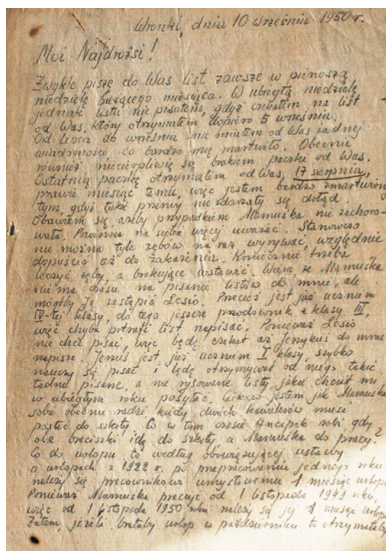 Wronki, dnia 10 września 1950 r.
Moi Najdrożsi!
Zwykle piszę do Was list zawsze w pierwszą
niedzielę bieżącego miesiąca. W ubiegłą niedzielę
jednak listu nie pisałem, gdyż czekałem na list
od Was, który otrzymałem dopiero 5 września.
Od lipca do września nie miałem od Was żadnej
wiadomości co bardzo mię martwiło. Obecnie
również niecierpliwię się brakiem paczki od Was.
Ostatnią paczkę otrzymałem od Was, 17 sierpnia,
prawie miesiąc temu, więc jestem bardzo zmartwiony
tym gdyż takie przerwy nie zdarzały się dotąd.
Obawiam się, ażeby przypadkiem Mamuśka nie zachoro-
wała. Powinna na siebie więcej uważać. Stanowczo
nie można tyle zębów na raz wyrywać, względnie
dopuścić aż do zakażenia. Koniecznie trzeba
leczyć zęby, a brakujące wstawić. Wiem że Mamuśka
nie ma czasu na pisanie listów do mnie, ale
mógłby Ją zastąpić Lesio. Przecież jest już uczniem
IV-tej klasy, do tego jeszcze przodownik z klasy III,
więc chyba potrafi list napisać. Ponieważ Lesio
nie chce pisać, więc będę czekał aż Jenyś do mnie
napisze. Jenuś jest już uczniem I klasy, szybko
nauczy się pisać i będę otrzymywał od niego takie
ładne pisane, a nie rysowane listy, jakie chciał mi
w ubiegłym roku posyłać. Ciekaw jestem jak Mamuśka
sobie obecnie radzi kiedy dwóch kawalerów musi
posłać do szkoły, to w tym czasie robi gdy
oba braciszki idą do szkoły a Mamuśka do pracy?
Co do urlopu to według obowiązującej ustawy
o urlopach z 1922 r. po przepracowaniu jednego roku
należy się pracownikowi umysłowemu 1 miesiąc urlopu
Ponieważ Mamuśka pracuje od 1 listopada 1949 roku,
więc od 1 listopada 1950 roku należy się jej 1 miesiąc urlopu
Zatem, jeżeli brałaby urlop w październiku to otrzymałaby